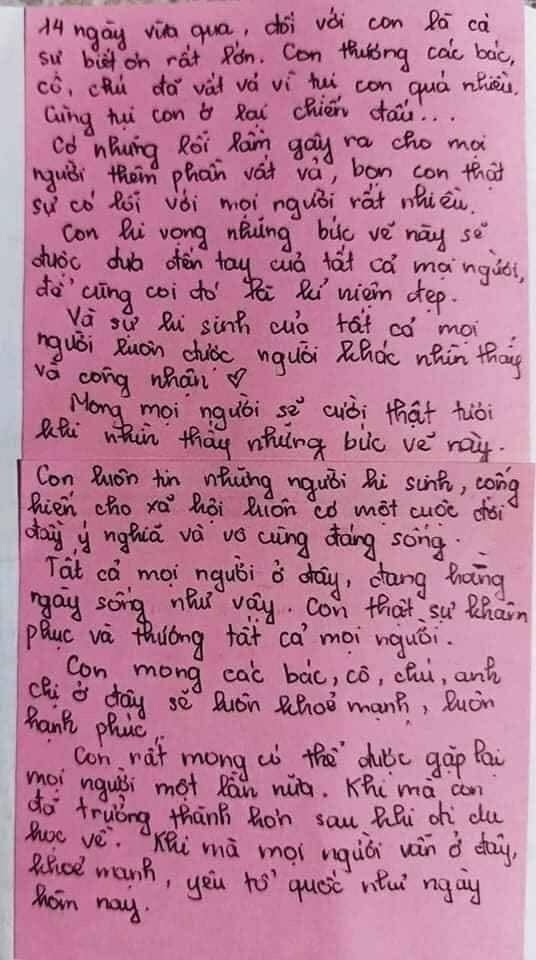 14 ngày vừa qua, đối với con là cả
sự biết ơn rất lớn. Con thương các bác,
cô, chú đã vất vả vì tụi con quá nhiều.
Cùng tụi con ở lại chiến đấu...
Có những lỗi lầm gây ra cho mọi
người thêm phần vất vả, bọn con thật
sự có lỗi với mọi người rất nhiều.
Con hi vọng những bức vẽ này sẽ
được đưa đến tay của tất cả mọi người,
để cũng coi đó là kỉ niệm đẹp.
Và sự hi sinh của tất cả mọi
người luôn được người khác nhìn thấy
và công nhận ♡
Mong mọi người sẽ cười thật tươi
khi nhìn thấy những bức vẽ này.
Con luôn tin những người hi sinh, cống
hiến cho xã hội luôn có một cuộc đời
đầy ý nghĩa và vô cùng đáng sống.
Tất cả mọi người ở đây, đang hằng
ngày sống như vậy. Con thật sự khâm
phục và thương tất cả mọi người.
Con mong các bác, cô, chú, anh
chị ở đây sẽ luôn khoẻ mạnh, luôn
hạnh phúc,
Con rất mong có thể được gặp lại
mọi người một lần nữa. Khi mà con
đã trưởng thành hơn sau khi đi du
học về. Khi mà mọi người vẫn ở đây,
khoẻ mạnh, yêu tổ quốc như ngày
hôm nay.